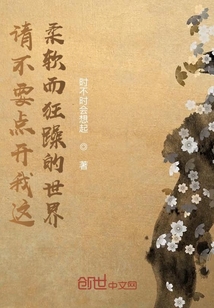 请不要点开我这
柔软而狂躁的世界
时不时会想起 ◎ 著
创世中文网